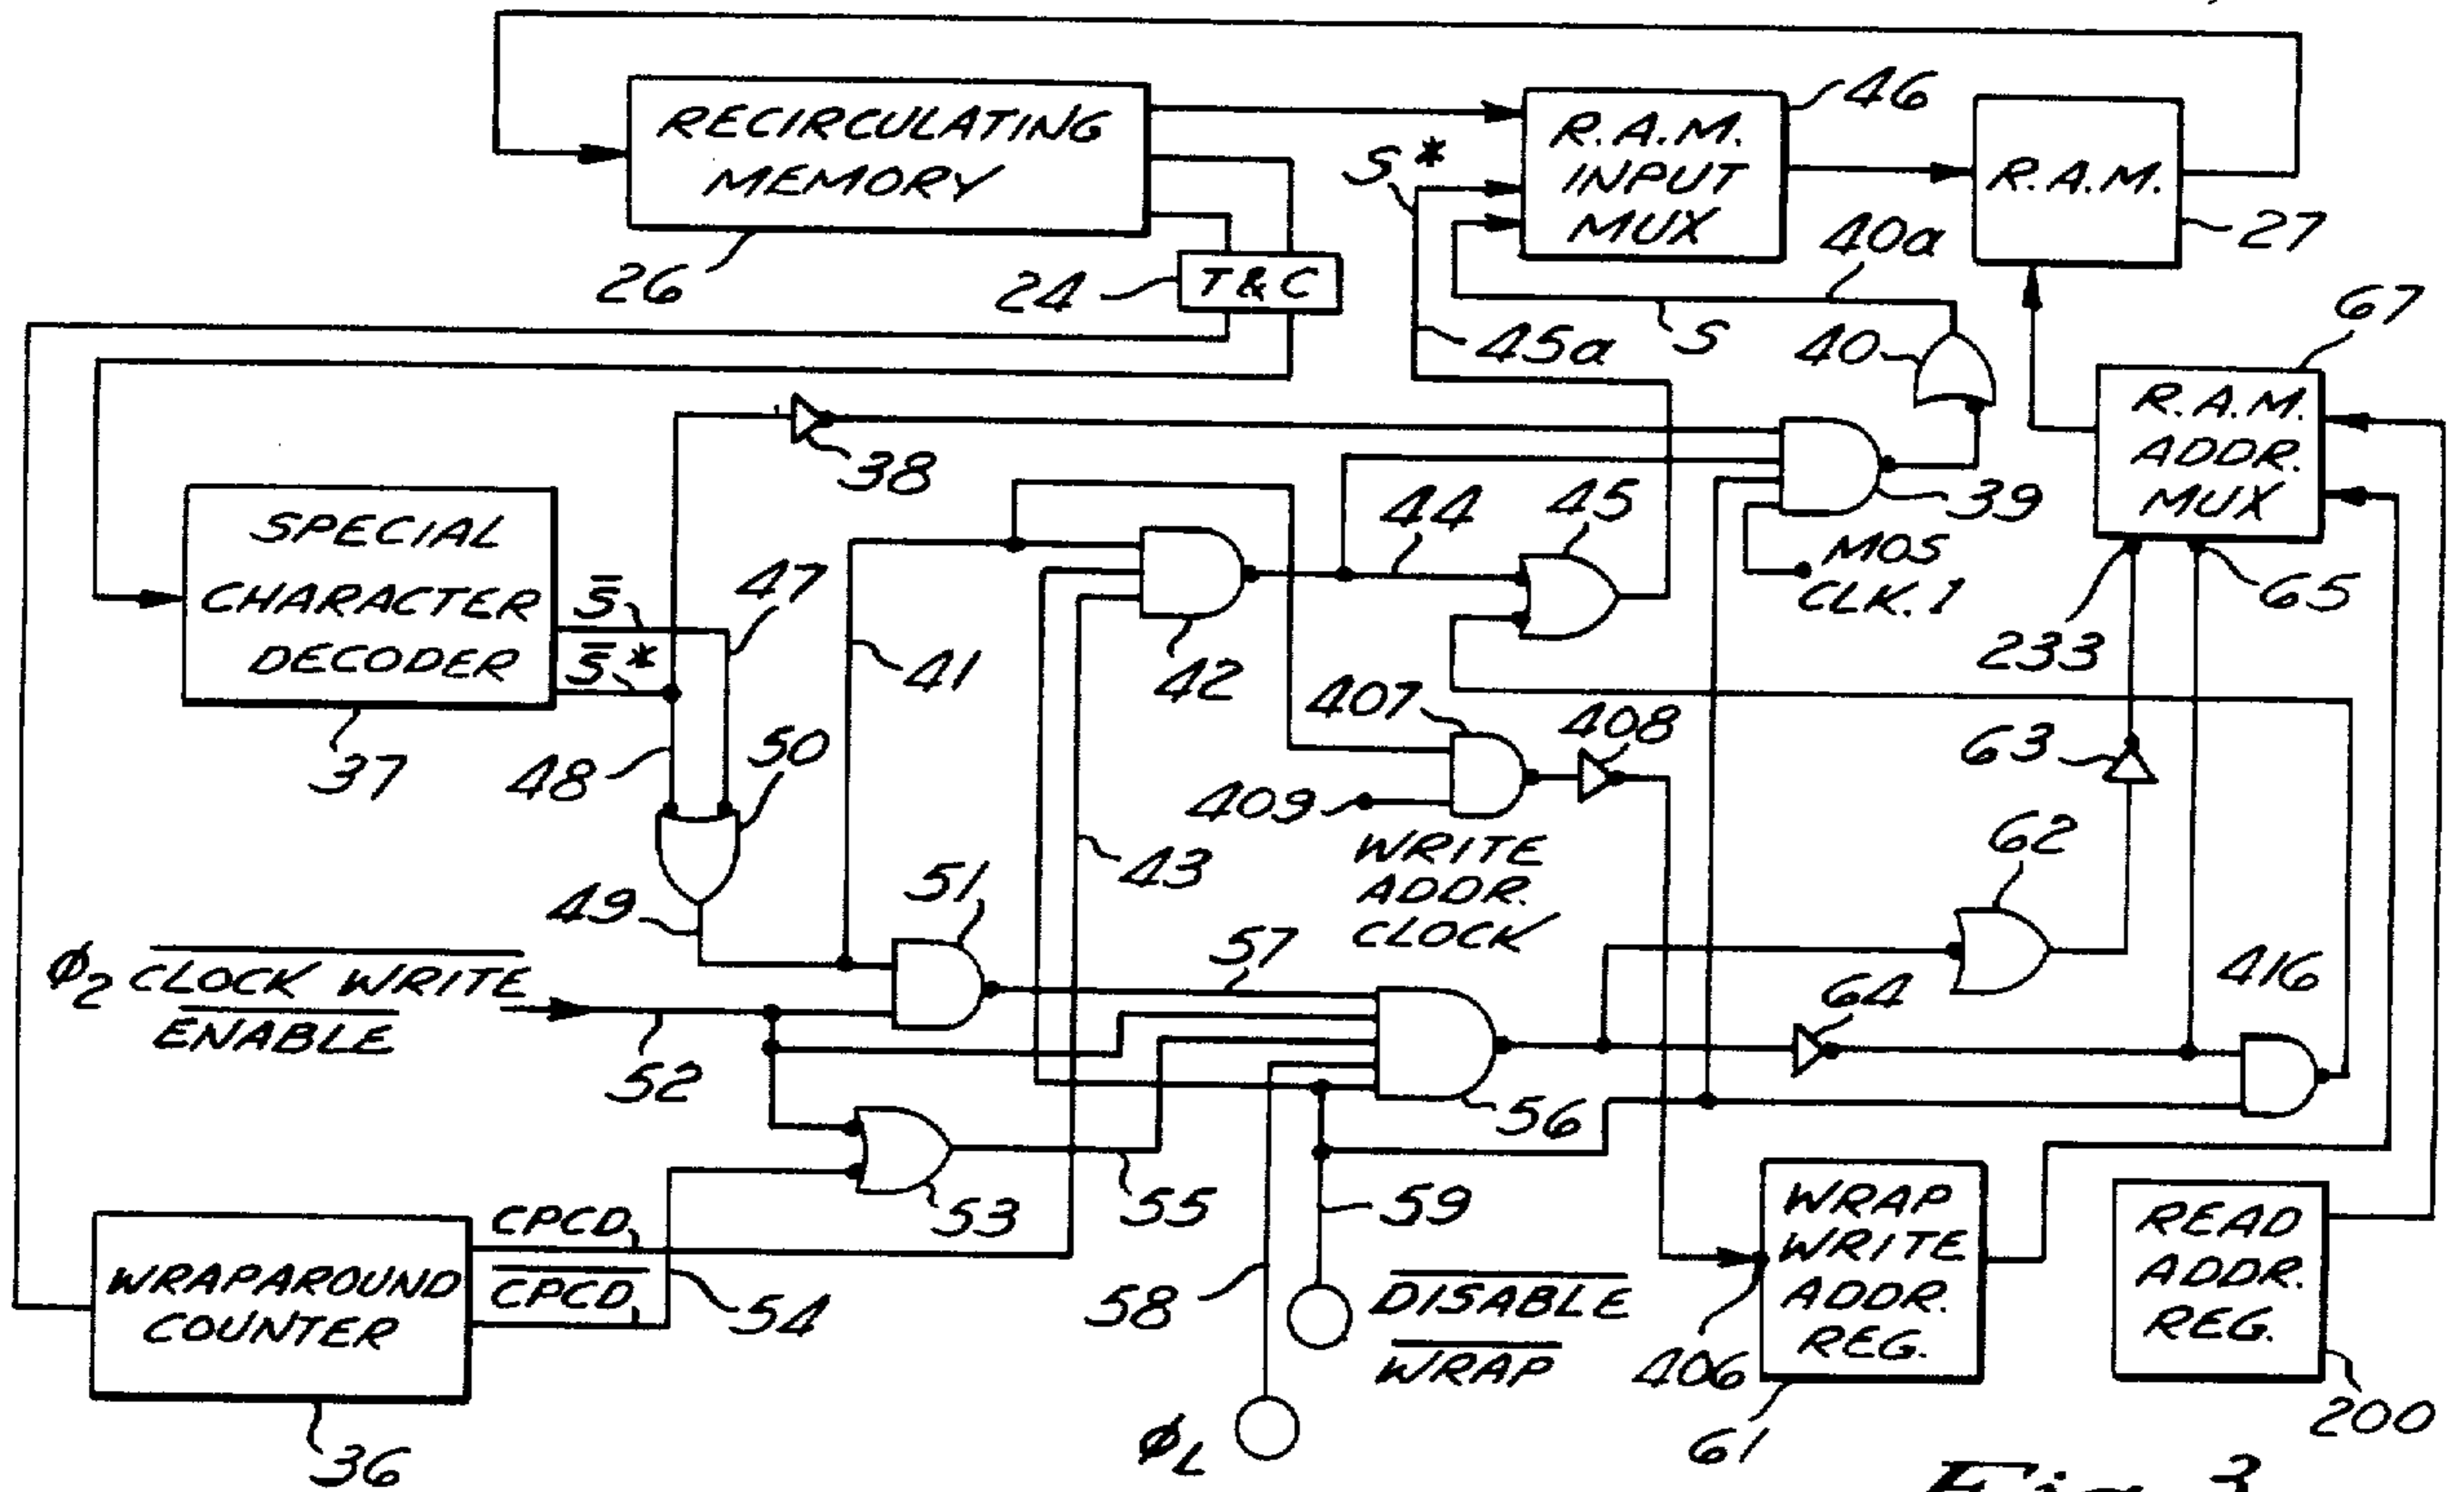 RECIRCULATING
MEMORY
26
T & C
24
R.A.M.
INPUT
MUX
46
S*
45a
S
40a
40
R.A.M.
27
67
R.A.M.
ADDR.
MUX
233
65
38
39
MOS
CLK. 1
SPECIAL
CHARACTER
DECODER
37
S̅
S̅*
47
48
50
49
41
42
43
44
45
407
408
409
WRITE
ADDR.
CLOCK
63
62
51
57
64
416
ϕ2 CLOCK WRITE
ENABLE
52
56
53
55
59
58
DISABLE
WRAP
ϕL
CPCD
CPCD
54
WRAPAROUND
COUNTER
36
WRAP
WRITE
ADDR.
REG.
406
61
READ
ADDR.
REG.
200
Fig. 3